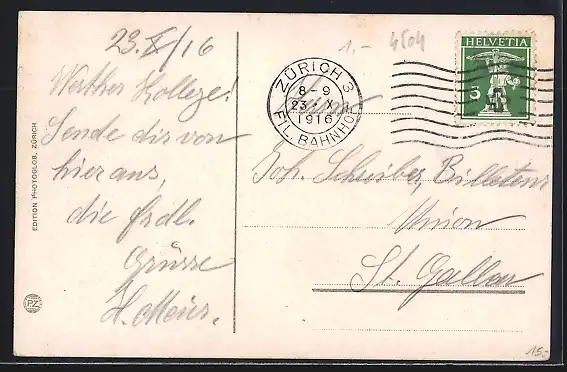 23.X/16
1.-
4504
Werther Kollege!
Sende dir von
hieraus
die frdl.
Grüsse
H. Meier.
EDITION PHOTOGLOB, ZÜRICH
PZ
ZÜRICH 3
8-9
23. X.
1916
FIL. BAHNHOF
HELVETIA
5
Herrn
Joh. Schreiber, Billeteur
Union
St. Gallen
15.-